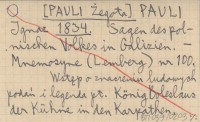 [PAULI Żegota] PAULI
Ignac 1834. Sagen des pol-
nischen Volkes in Galizien. —
Mnemosyne (Lemberg) nr 100.
Wstęp o znaczeniu ludowych
podań i legenda pt. König Boleslaus
der Kühne in den Karpathen.